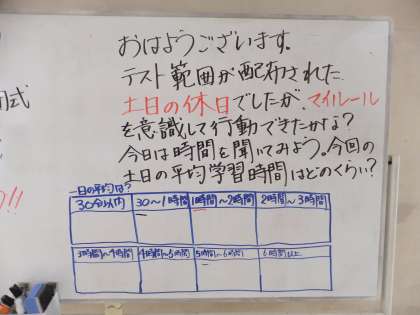 おはようございます。
テスト範囲が配布された
土日の休日でしたが、マイルール
を意識して行動できたかな?
今日は時間を聞いてみよう。今回の
土日の平均学習時間はどのくらい?
式
!!
一日の平均は?
30分以内 30〜1時間 1時間〜2時間 2時間〜3時間
3時間〜4時間 4時間〜5時間 5時間〜6時間 6時間以上